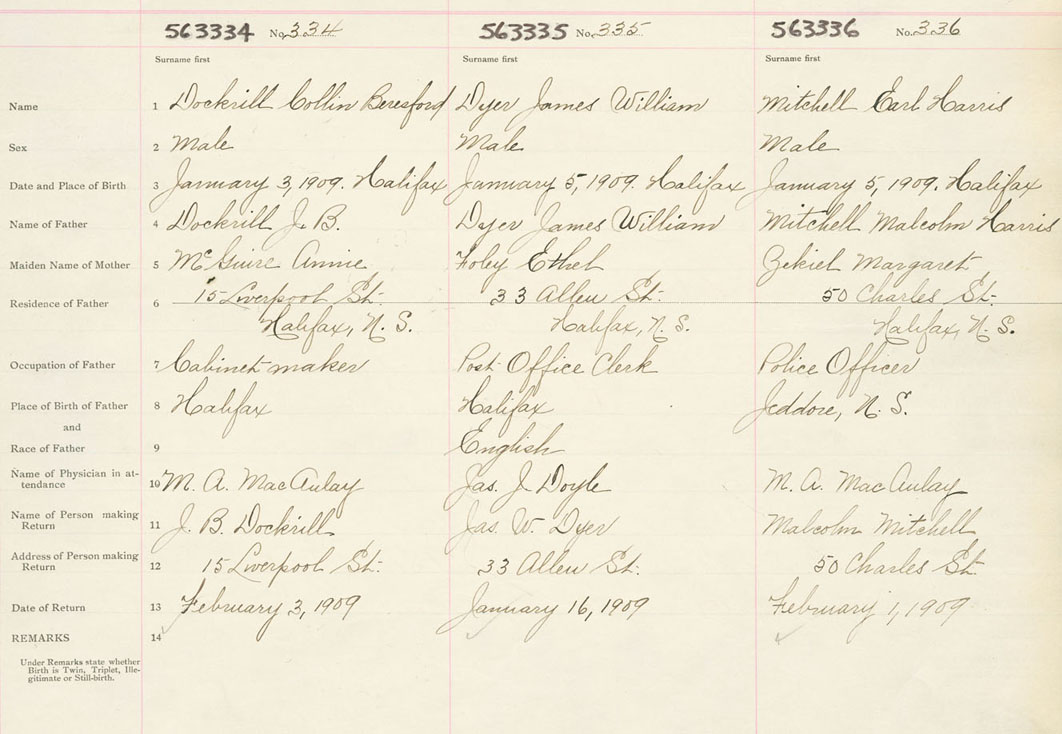 563334 No. 334 563335 No. 335 563336 No. 336
Surname first Surname first Surname first
Name 1 Dockrill Collin Beresford Dyer James William Mitchell Earl Harris
Sex 2 Male Male Male
Date and Place of Birth 3 January 3, 1909. Halifax January 5, 1909. Halifax January 5, 1909. Halifax
Name of Father 4 Dockrill J. B. Dyer James William Mitchell Malcolm Harris
Maiden Name of Mother 5 McGuire Annie Foley Ethel Ezekiel Margaret
Residence of Father 6 15 Liverpool St. 33 Allen St. 50 Charles St.
Halifax, N. S. Halifax, N. S. Halifax, N. S.
Occupation of Father 7 Cabinet maker Post Office Clerk Police Officer
Place of Birth of Father 8 Halifax Halifax Jeddore, N. S.
and
Race of Father 9 English
Name of Physician in at-
tendance 10 M. A. MacAulay Jas. J. Doyle M. A. MacAulay
Name of Person making
Return 11 J. B. Dockrill Jas. W. Dyer Malcolm Mitchell
Address of Person making
Return 12 15 Liverpool St. 33 Allen St. 50 Charles St.
Date of Return 13 February 3, 1909 January 16, 1909 February 1, 1909
REMARKS 14
Under Remarks state whether
Birth is Twin, Triplet, Ille-
gitimate or Still-birth.